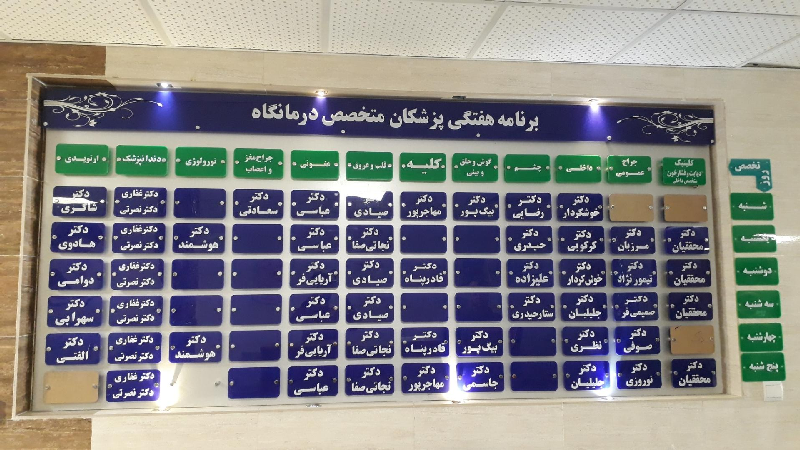 برنامه هفتگی پزشکان متخصص درمانگاه
تخصص
روز
کلینیک
دیابت و فشارخون
متخصص داخلی
جراح
عمومی
داخلی
چشم
گوش و حلق
و بینی
کلیه
قلب و عروق
عفونی
جراح مغز
و اعصاب
نورولوژی
دندانپزشک
ارتوپدی
شنبه
دکتر
خوشکردار
دکتر
رضایی
دکتر
بیک پور
دکتر
مهاجرپور
دکتر
صیادی
دکتر
عباسی
دکتر
سعادتی
دکتر غفاری
دکتر نصرتی
دکتر
شاکری
یکشنبه
دکتر
محققیان
دکتر
مرزبان
دکتر
کرکویی
دکتر
حیدری
دکتر
نجاتی صفا
دکتر
عباسی
دکتر
هوشمند
دکتر غفاری
دکتر نصرتی
دکتر
هادوی
دوشنبه
دکتر
محققیان
دکتر
تیمور نژاد
دکتر
خوش کردار
دکتر
علیزاده
دکتر
قادرپناه
دکتر
صیادی
دکتر
آریایی فر
دکتر غفاری
دکتر نصرتی
دکتر
دوامی
سه شنبه
دکتر
محققیان
دکتر
صمیمی فر
دکتر
جلیلیان
دکتر
ستارحیدری
دکتر
صیادی
دکتر
عباسی
دکتر غفاری
دکتر نصرتی
دکتر
سهرابی
چهارشنبه
دکتر
صوفی
دکتر
نظری
دکتر
بیک پور
دکتر
قادرپناه
دکتر
نجاتی صفا
دکتر
آریایی فر
دکتر
هوشمند
دکتر غفاری
دکتر نصرتی
دکتر
الفتی
پنج شنبه
دکتر
محققیان
دکتر
نوروزی
دکتر
جلیلیان
دکتر
جاسمی
دکتر
مهاجرپور
دکتر
نجاتی صفا
دکتر
عباسی
دکتر غفاری
دکتر نصرتی